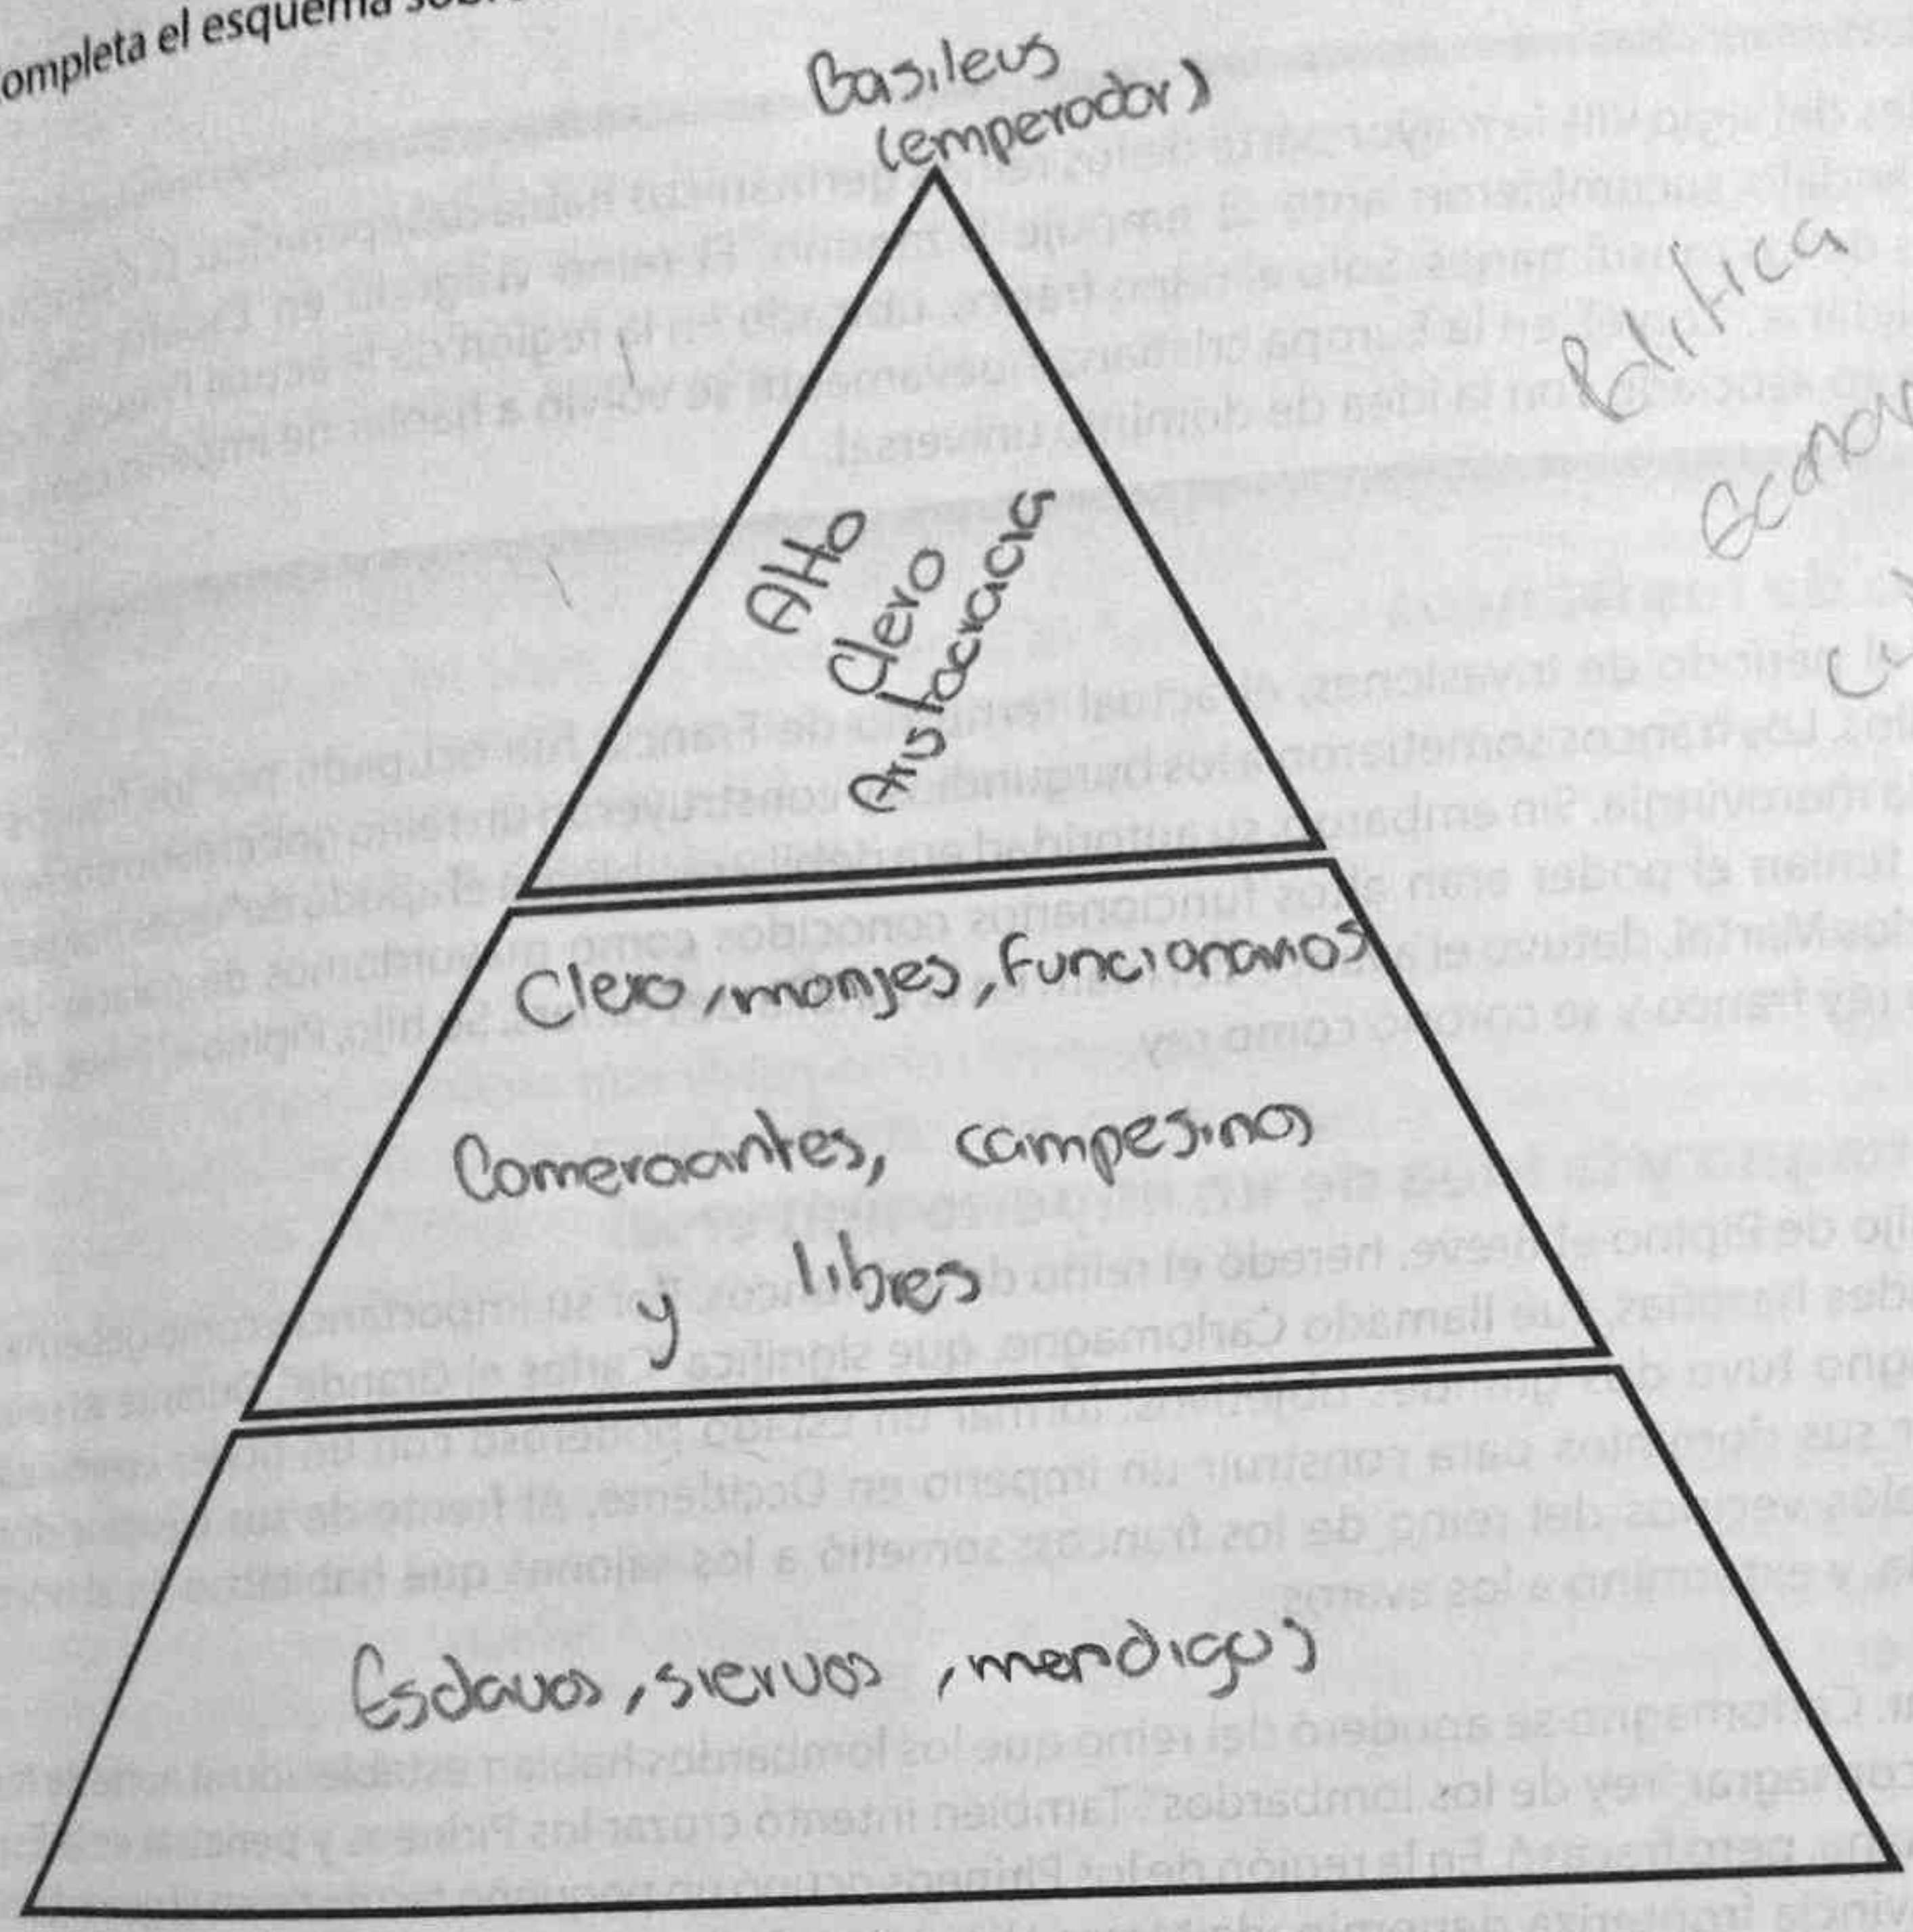 ompleta el esquema
Basileus
(emperador)
Politica
Alto
Clero
Aristocracia
Clero, monjes, funcionarios
Comerciantes, campesinos
y libres
Esclavos, siervos, mendigos